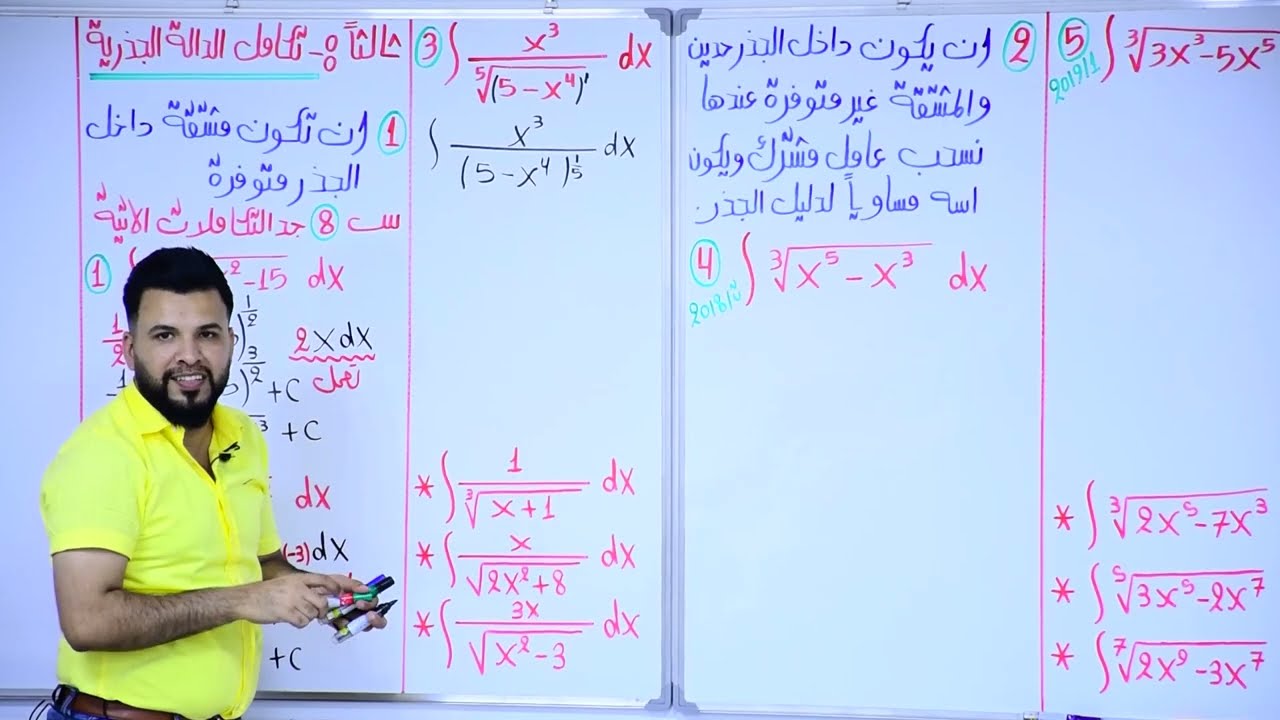 ثالثاً :- تكامل الدالة الجذرية
① ان تكون مشتقة داخل
الجذر متوفرة
س ⑧ جد التكاملات الاتية
① ∫ x² -15 dx
1/2 )^(1/2) 2x dx
تكمل
)^(3/2) + C
3 + C
dx
(-3) dx
+ C
③ ∫ x³ / ⁵√(5 - x⁴)¹ dx
∫ x³ / (5 - x⁴)^(1/5) dx
* ∫ 1 / ³√(x + 1) dx
* ∫ x / √(2x² + 8) dx
* ∫ 3x / √(x² - 3) dx
② ان يكون داخل الجذر حدين
والمشتقة غير متوفرة عندها
نسحب عامل مشترك ويكون
اسه مساوياً لدليل الجذر.
④ ∫ ³√(x⁵ - x³) dx
2018
⑤ ∫ ³√(3x³ - 5x⁵)
2019/1
* ∫ ³√(2x⁵ - 7x³)
* ∫ ⁵√(3x⁵ - 2x⁷)
* ∫ ⁷√(2x⁹ - 3x⁷)